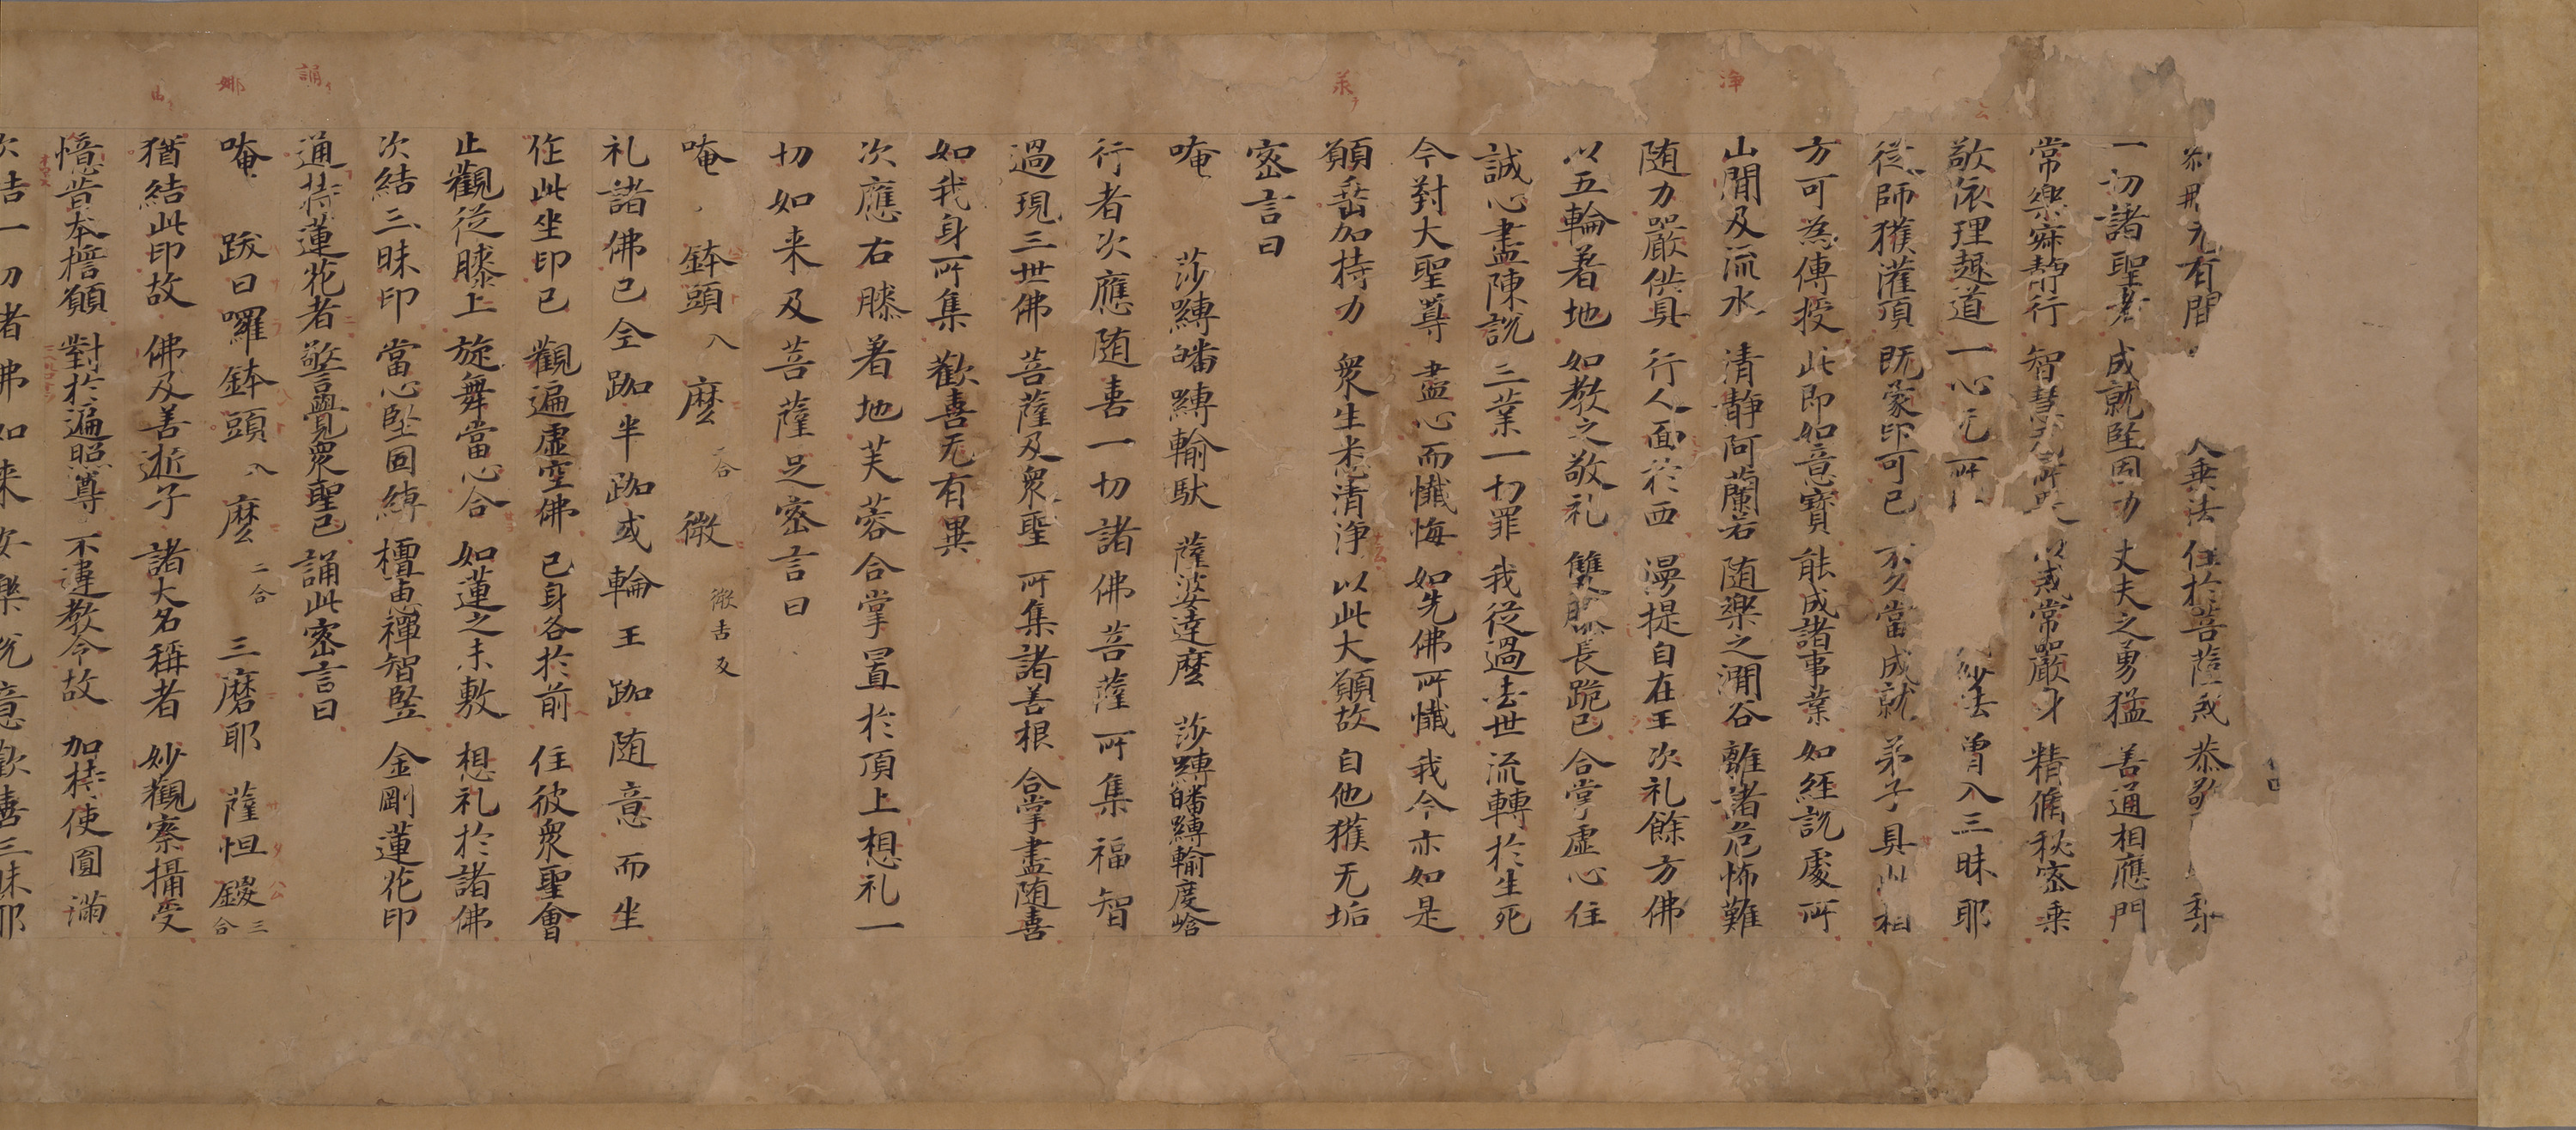 元有間 乗法 住於菩薩戒 恭敬
一切諸聖者 成就堅固力 丈夫之勇猛 善通相應門
常樂寂静行 智慧 以戒常嚴身 精修秘密乗
敬依理趣道 一心无所 妙法 曾入三昧耶
従師獲灌頂 既蒙印可已 不久當成就 弟子具此相
方可為傳授 此即如意寶 能成諸事業 如經説處所
山間及流水 清静阿蘭若 随樂之澗谷 離諸危怖難
随力嚴供具 行人面於西 漫提自在王 次礼餘方佛
以五輪着地 如教之敬礼 雙膝長跪已 合掌虚心住
誠心盡陳説 三業一切罪 我従過去世 流轉於生死
今對大聖尊 盡心而懺悔 如先佛所懺 我今亦如是
願垂加持力 衆生悉清浄 以此大願故 自他獲无垢
密言曰
唵 莎縛皤縛輸馱 薩婆達麼 莎縛皤縛輸度唅
行者次應随喜一切諸佛菩薩所集福智
過現三世佛 菩薩及衆聖 所集諸善根 合掌盡随喜
如我身所集 歡喜无有異
次應右膝着地芙蓉合掌置於頂上想礼一
切如来及菩薩足密言曰
唵 鉢頭 入 麼 二合 微 微吉反
礼諸佛已全跏半跏或輪王跏随意而坐
作此坐印已 觀遍虚空佛 己身各於前 住彼衆聖會
止觀従膝上 旋舞當心合 如蓮之未敷 想礼於諸佛
次結三昧印 當心堅固縛 檀惠禪智竪 金剛蓮花印
通持蓮花者 警覺衆聖已 誦此密言曰
唵 跋曰囉鉢頭 入 麼 二合 三磨耶 薩怛鑁 三合
猶結此印故 佛及善逝子 諸大名稱者 妙觀察攝受
憶昔本擔願 對於遍照尊 不違教令故 加持使圓滿
次告一切者佛如来安樂悦意歡喜三昧耶
誦
娜
浄